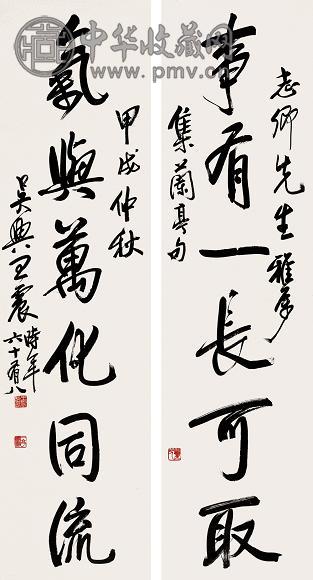 中华收藏网
www.pmv.cn
志卿先生雅属
事有一長可取
集蘭亭句
甲戌仲秋
氣與萬化同流
吳興王震時年
六十有八